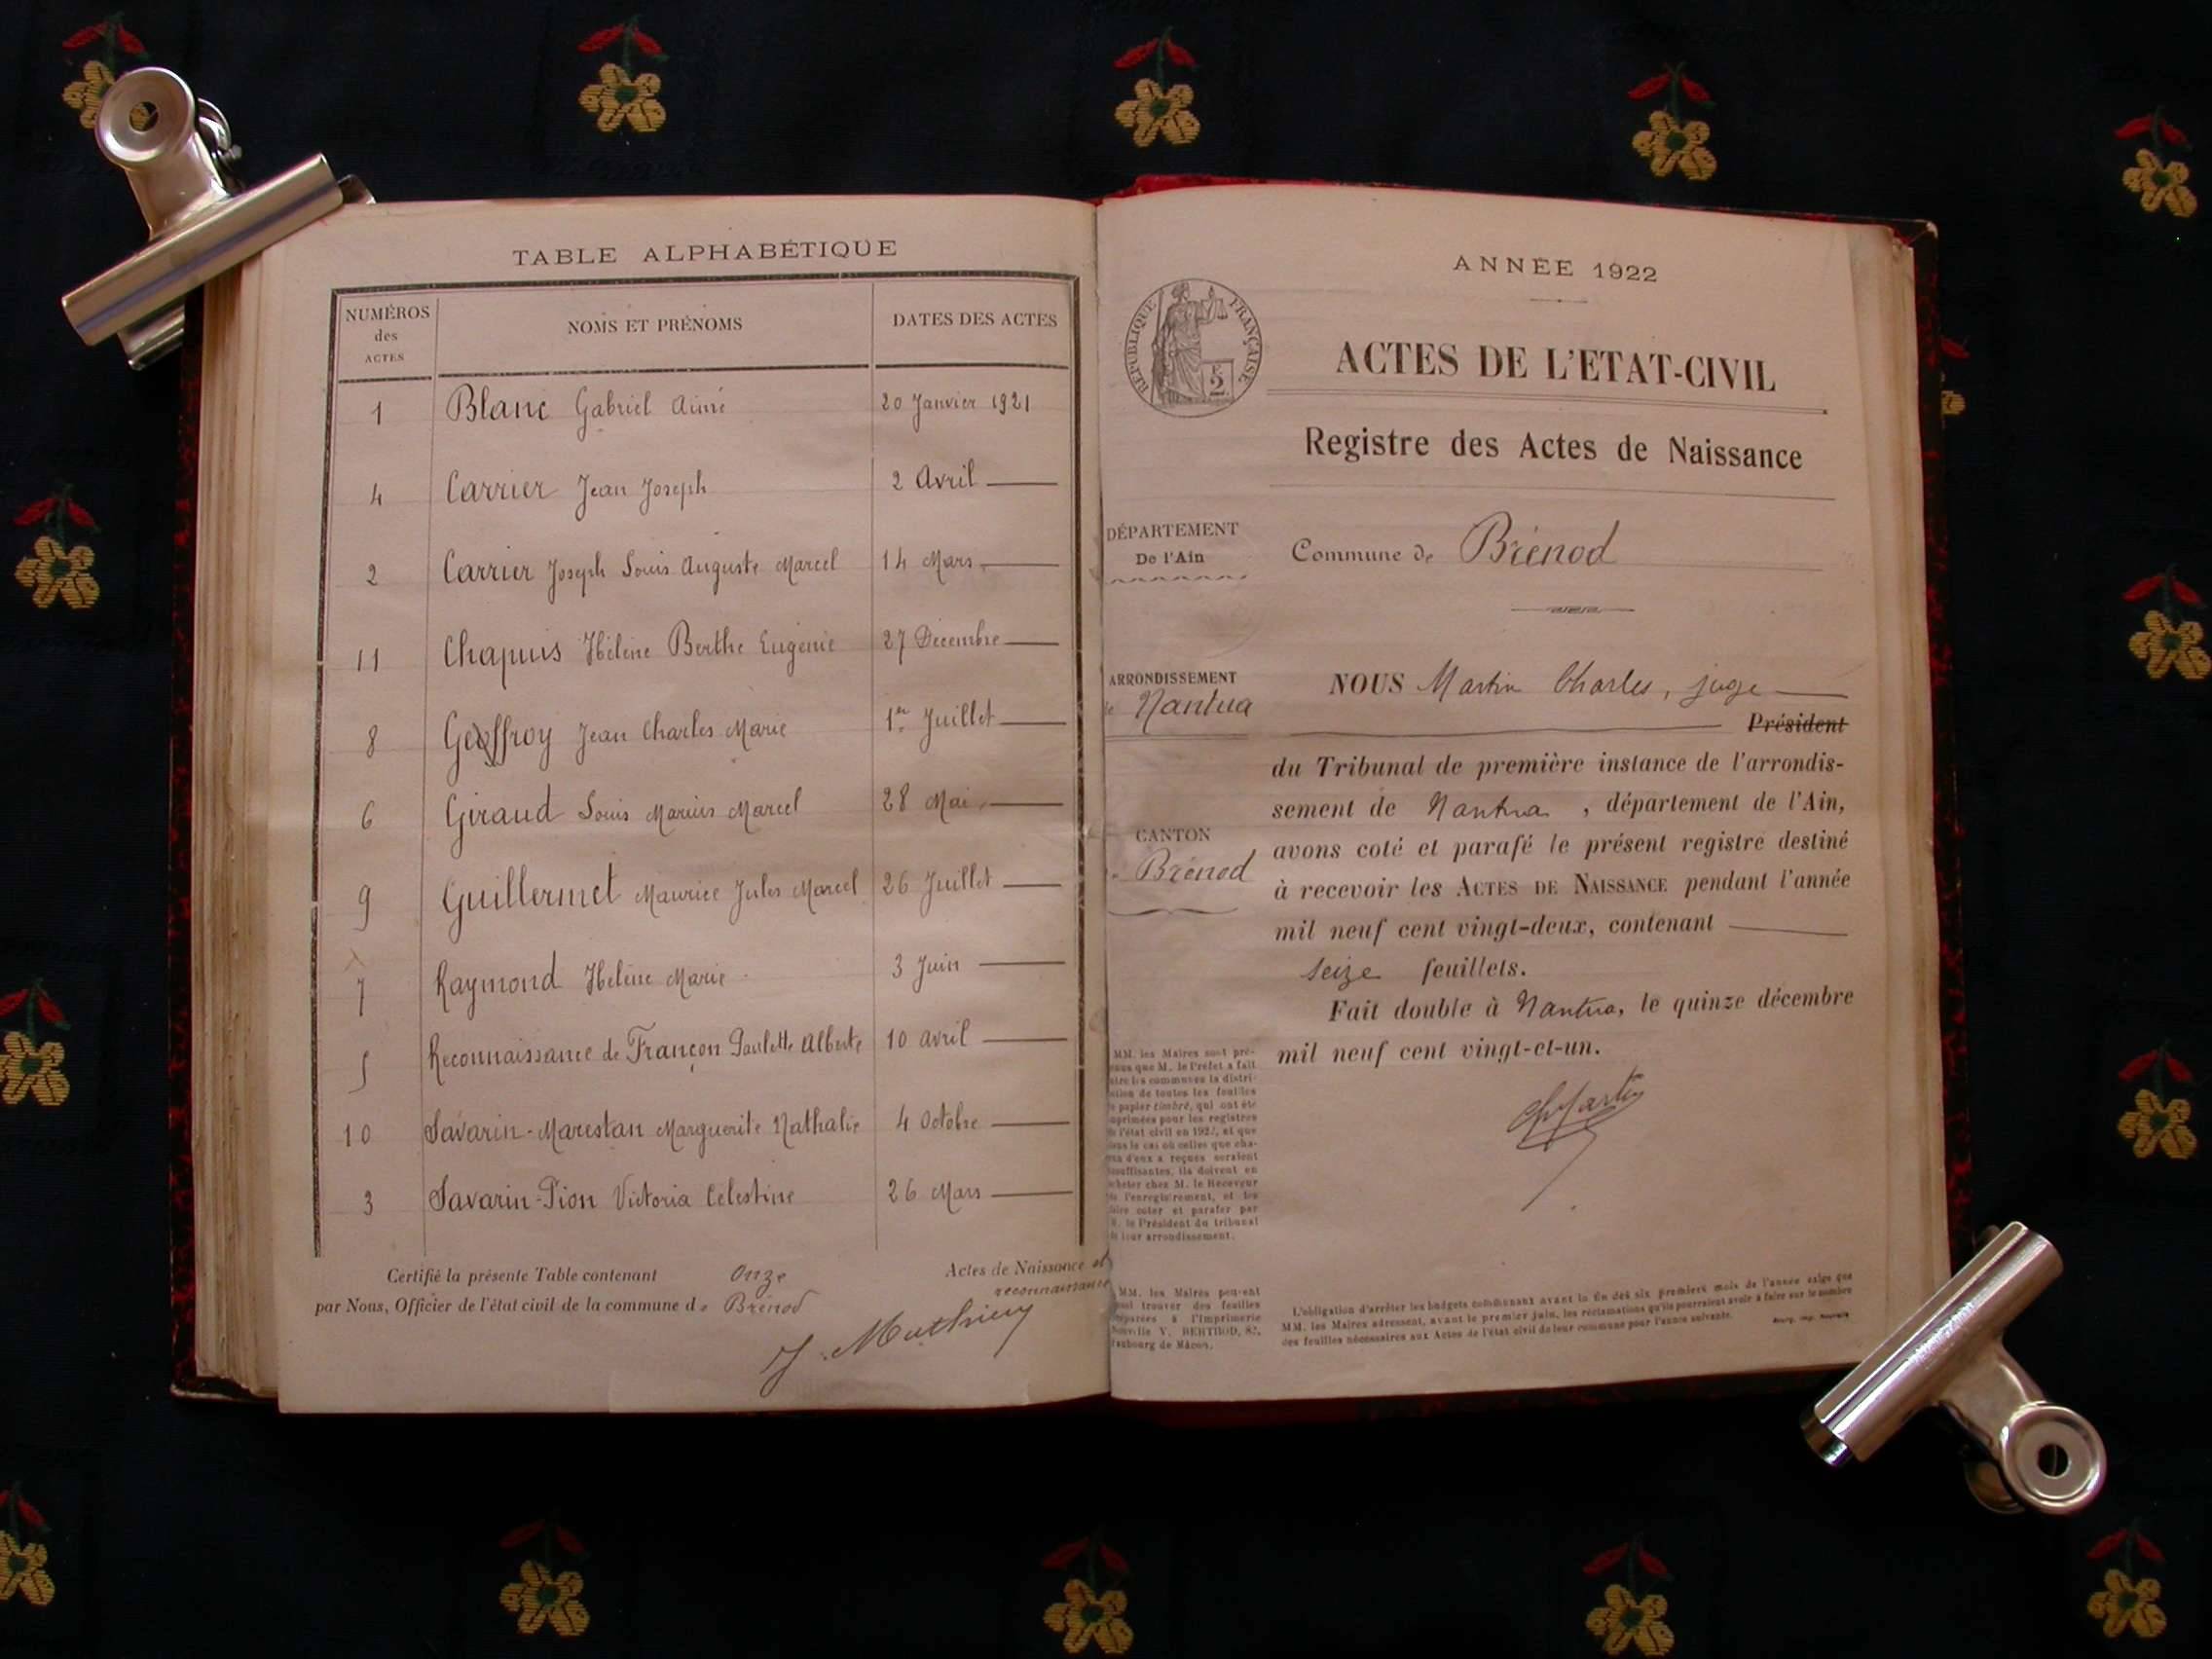 TABLE ALPHABÉTIQUE
NUMÉROS
des
ACTES
NOMS ET PRÉNOMS
DATES DES ACTES
1 Blanc Gabriel Aimé 20 Janvier 1921
4 Carrier Jean Joseph 2 Avril
2 Carrier Joseph Louis Auguste Marcel 14 Mars
11 Chapuis Hélène Berthe Eugénie 27 Décembre
8 Geoffroy Jean Charles Marie 1er Juillet
6 Giraud Louis Marius Marcel 28 Mai
9 Guillermet Maurice Jules Marcel 26 Juillet
7 Raymond Hélène Marie 3 Juin
5 Reconnaissance de Françon Paulette Alberte 10 avril
10 Savarin-Marestan Marguerite Nathalie 4 Octobre
3 Savarin-Pion Victoria Célestine 26 Mars
Certifié la présente Table contenant Onze Actes de Naissance et
reconnaissance
par Nous, Officier de l'état civil de la commune de Brénod
J. Mathieu
ANNÉE 1922
RÉPUBLIQUE FRANÇAISE
2
ACTES DE L'ETAT-CIVIL
Registre des Actes de Naissance
DÉPARTEMENT
De l'Ain
Commune de Brénod
ARRONDISSEMENT
de Nantua
CANTON
Brénod
NOUS Martin Charles, juge
Président
du Tribunal de première instance de l'arrondis-
sement de Nantua, département de l'Ain,
avons coté et parafé le présent registre destiné
à recevoir les ACTES DE NAISSANCE pendant l'année
mil neuf cent vingt-deux, contenant
seize feuillets.
Fait double à Nantua, le quinze décembre
mil neuf cent vingt-et-un.
Ch Martin
MM. les Maires sont pré-
venus que M. le Préfet a fait
faire les communes la distri-
bution de toutes les feuilles
de papier timbré, qui ont été
imprimées pour les registres
de l'état civil en 1922, et que
dans le cas où celles que cha-
cun d'eux a reçues seraient
insuffisantes, ils doivent en
acheter chez M. le Receveur
de l'enregistrement, et les
faire coter et parafer par
M. le Président du tribunal
de leur arrondissement.
MM. les Maires peuvent
trouver des feuilles
préparées à l'Imprimerie
Nouvelle V. BERTHOD, 82,
faubourg de Mâcon.
L'obligation d'arrêter les budgets communaux avant la fin des six premiers mois de l'année exige que
MM. les Maires adressent, avant le premier juin, les réclamations qu'ils pourraient avoir à faire sur le nombre
des feuilles nécessaires aux Actes de l'état civil de leur commune pour l'année suivante.
Bourg, imp. Nouvelle